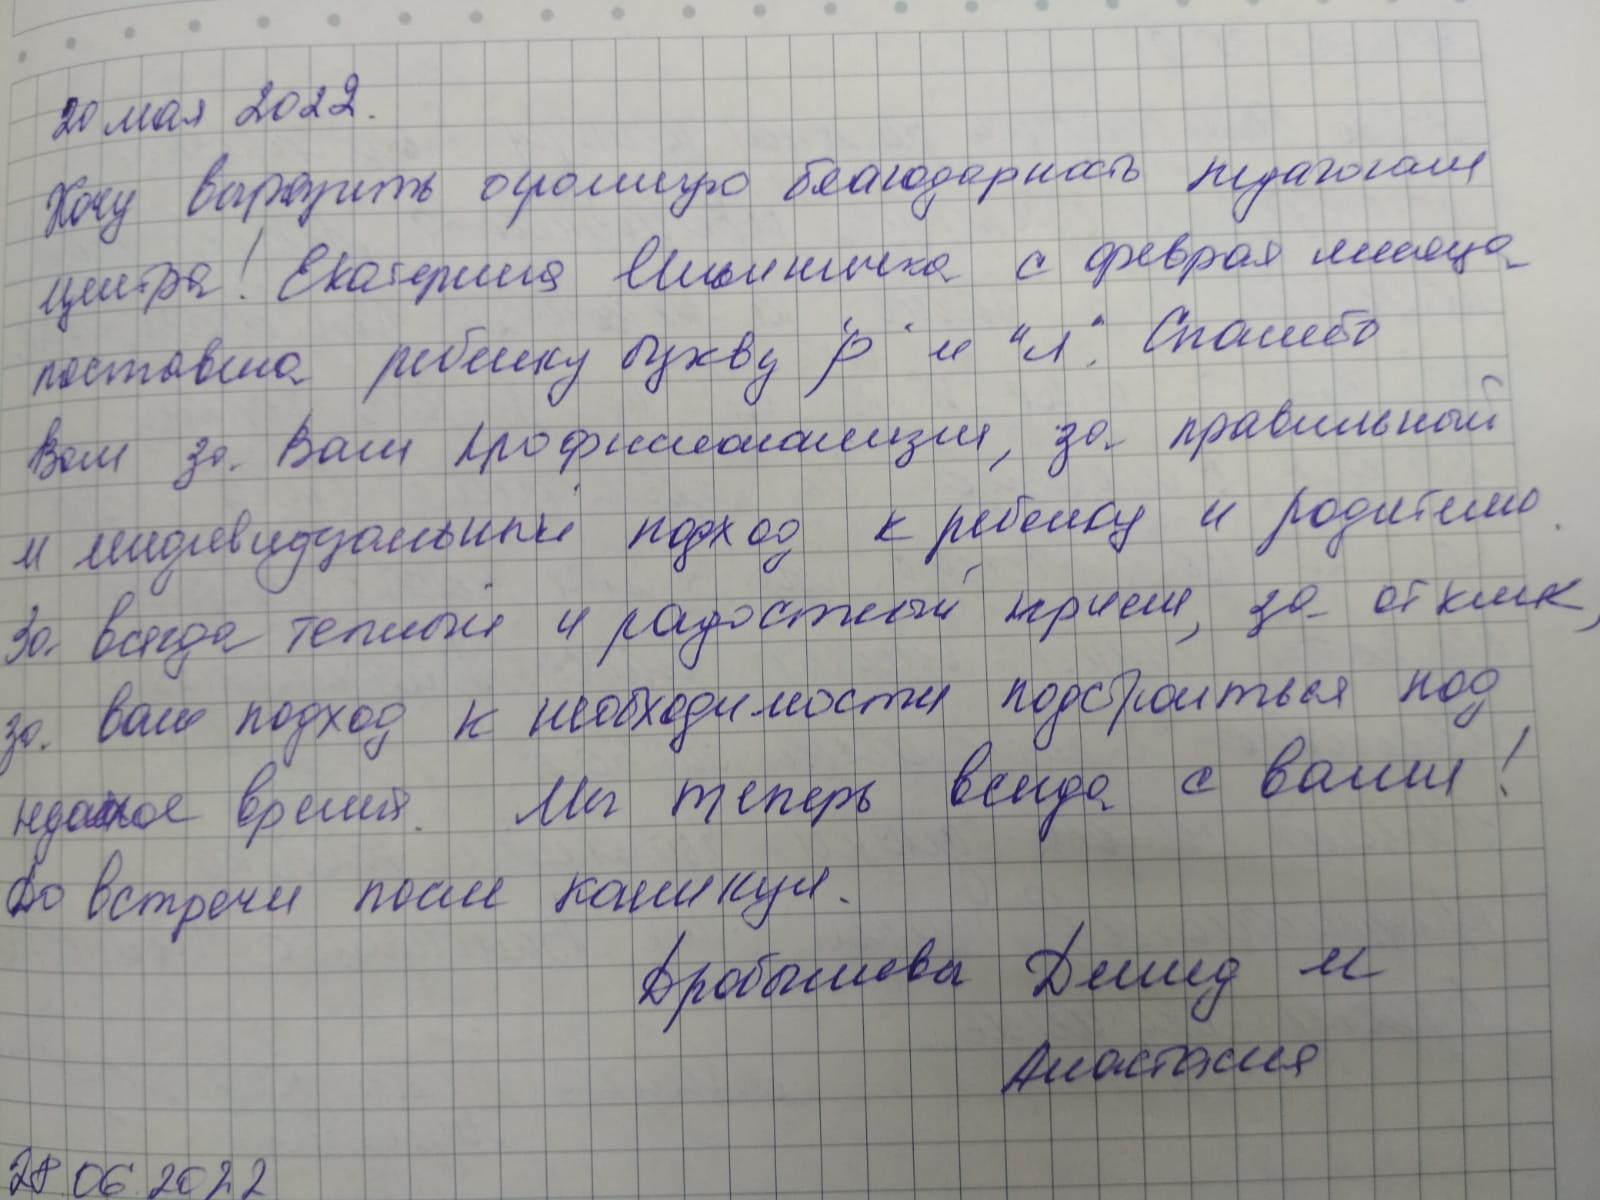 20 мая 2022.
Хочу выразить огромную благодарность педагогам
центра! Екатерина Ильинична с феврая месяца
поставила ребенку букву "р" и "л". Спасибо
Вам за Ваш профессионализм, за правильный
и индивидуальный подход к ребенку и родителю.
За всегда теплый и радостный прием, за отклик,
за ваш подход к необходимости подстроиться под
время. Мы теперь всегда с вами!
До встречи после каникул.
Дробышевы Демид и
Анастасия
28.06.2022